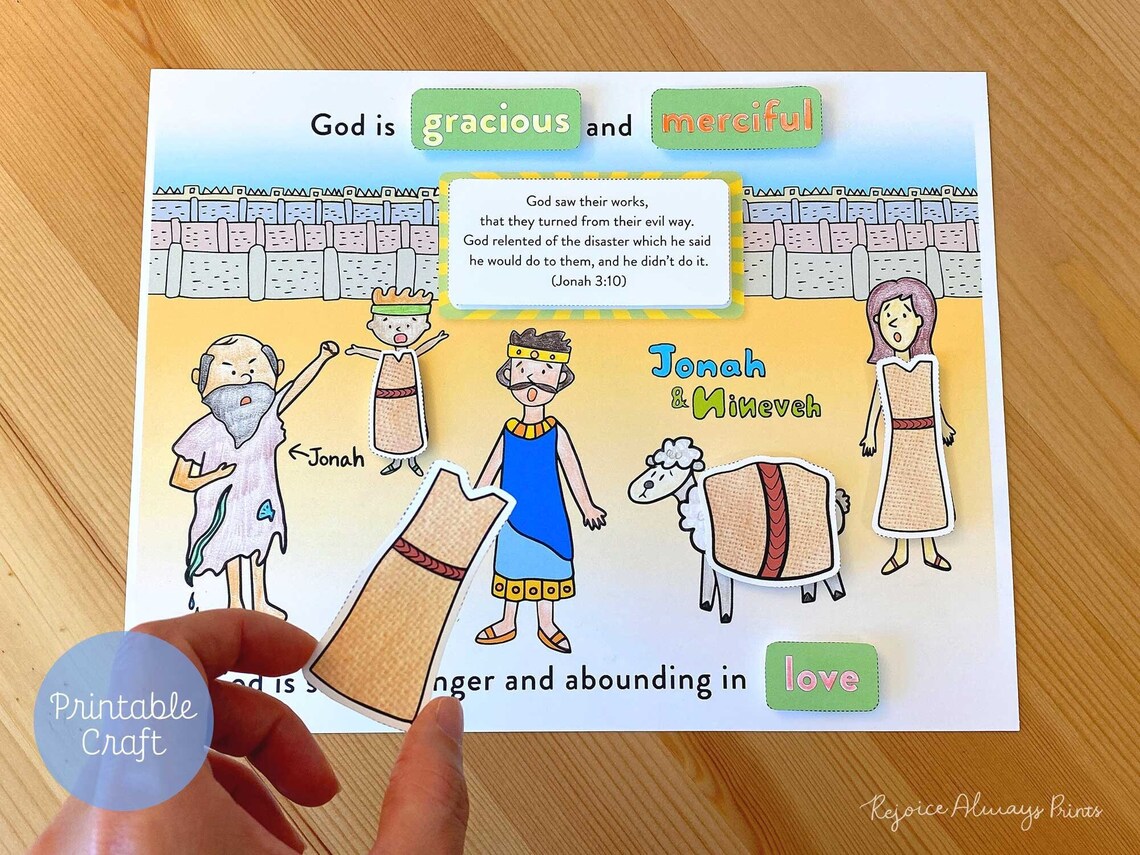 God is gracious and merciful
God saw their works,
that they turned from their evil way.
God relented of the disaster which he said
he would do to them, and he didn't do it.
(Jonah 3:10)
Jonah
& Nineveh
←Jonah
is anger and abounding in love
Printable
Craft
Rejoice Always Prints